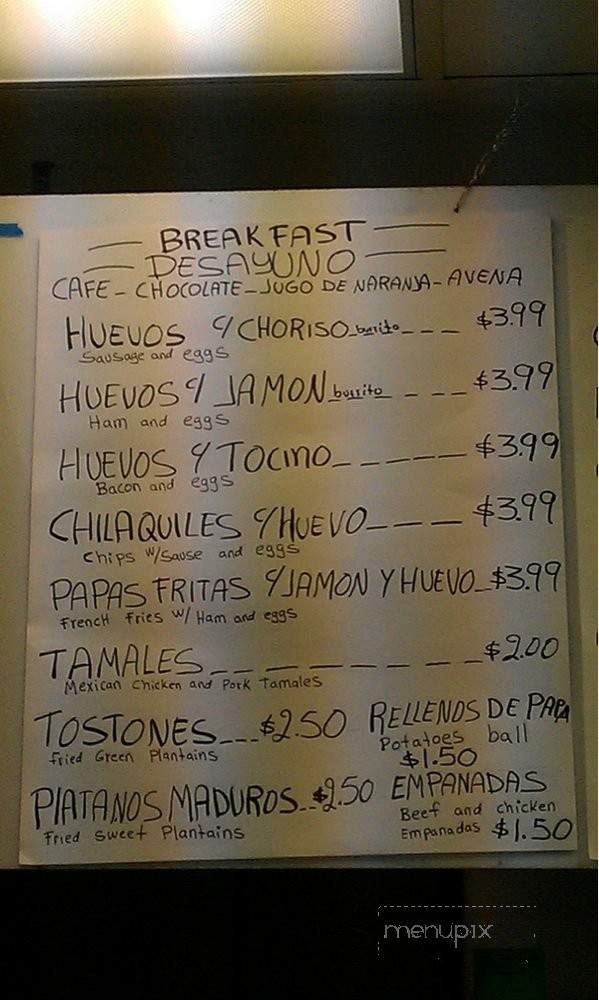 BREAKFAST
DESAYUNO
CAFE - CHOCOLATE - JUGO DE NARANJA - AVENA
HUEVOS C/ CHORISO burrito --- $3.99
Sausage and eggs
HUEVOS C/ JAMON burrito --- $3.99
Ham and eggs
HUEVOS C/ TOCINO ----- $3.99
Bacon and eggs
CHILAQUILES C/ HUEVO --- $3.99
Chips w/sause and eggs
PAPAS FRITAS C/ JAMON Y HUEVO - $3.99
French fries w/ Ham and eggs
TAMALES -------- $2.00
Mexican Chicken and Pork Tamales
TOSTONES --- $2.50
fried Green Plantains
RELLENOS DE PAPA
Potatoes ball
$1.50
PLATANOS MADUROS -- $2.50
Fried sweet Plantains
EMPANADAS
Beef and chicken
Empanadas $1.50
menupix